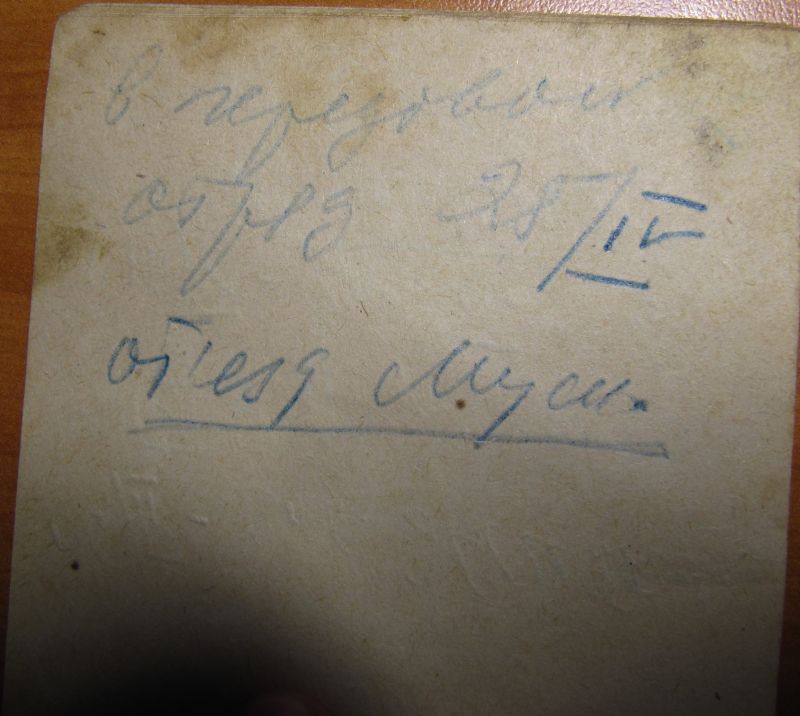 в передовой
отряд 28/IV
от'езд Муси.